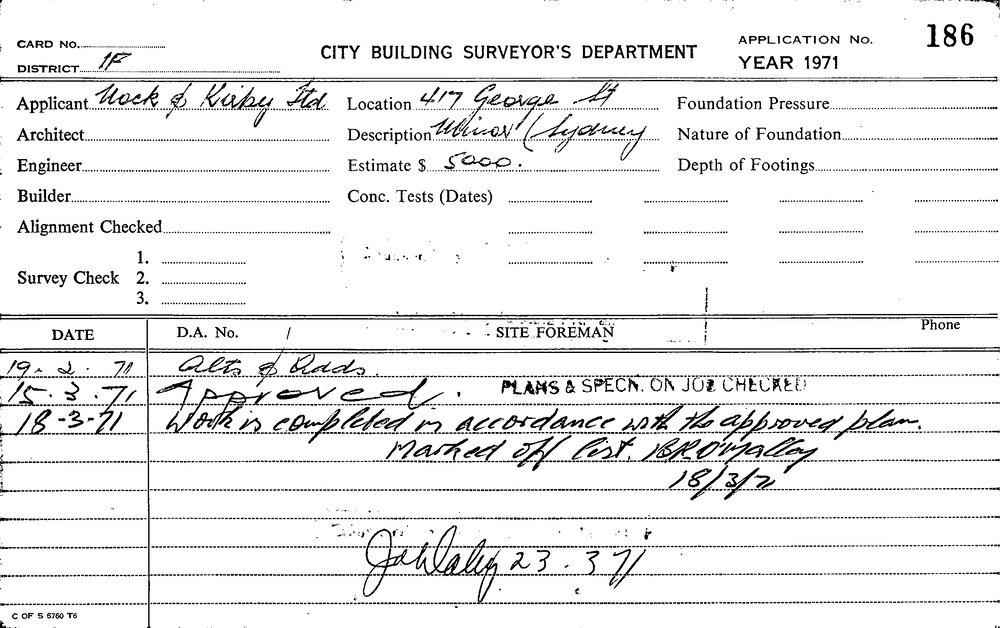 186
CARD No.
CITY BUILDING SURVEYOR'S DEPARTMENT
APPLICATION No.
DISTRICT 1F
YEAR 1971
Applicant Nock & Kirby Ltd Location 417 George St Foundation Pressure
Architect Description Minor (Sydney Nature of Foundation
Engineer Estimate $ 5000. Depth of Footings
Builder Conc. Tests (Dates)
Alignment Checked
1.
Survey Check 2.
3.
DATE D.A. No. / SITE FOREMAN Phone
19.2.71 Alts & Adds
15.3.71 Approved. PLANS & SPECN. ON JOB CHECKED
18-3-71 Work is completed in accordance with the approved plan.
Marked off list. BRO'Malley
18/3/71
23.3.71
C OF S 6760 T6